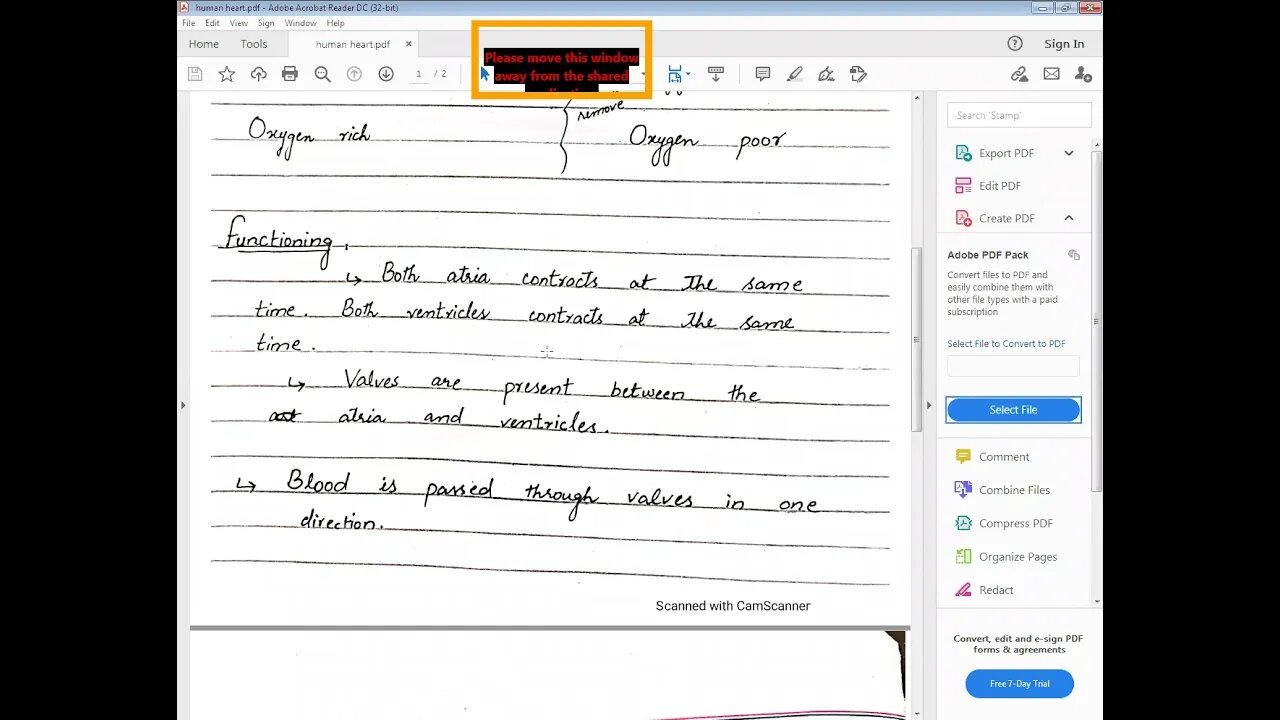 human heart.pdf - Adobe Acrobat Reader DC (32-bit)
File Edit View Sign Window Help
Home Tools human heart.pdf × Sign In
Please move this window
away from the shared
1 / 2
Search 'Stamp'
remove
Oxygen rich Oxygen poor
Functioning.
↳ Both atria contracts at the same
time. Both ventricles contracts at the same
time.
↳ Valves are present between the
atria and ventricles.
↳ Blood is passed through valves in one
direction.
Scanned with CamScanner
Export PDF
Edit PDF
Create PDF
Adobe PDF Pack
Convert files to PDF and
easily combine them with
other file types with a paid
subscription.
Select File to Convert to PDF
Select File
Comment
Combine Files
Compress PDF
Organize Pages
Redact
Convert, edit and e-sign PDF
forms & agreements
Free 7-Day Trial